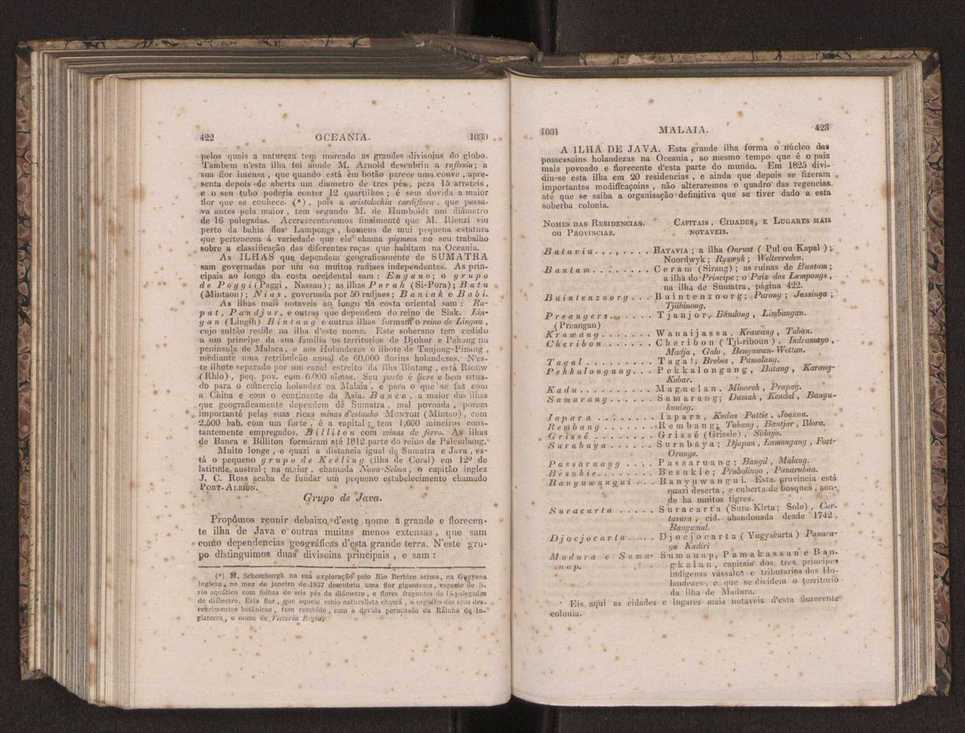 422 OCEANIA. 1030
pelos quaes a natureza tem marcado as grandes divisões do globo.
Tambem n'esta ilha foi aonde M. Arnold descubriu a rafflesia; a
sua flor imensa, que quando está em botão parece uma couve, apre-
senta depois de aberta um diametro de tres pés, peza 15 arrateis,
e o seu tubo poderia conter 12 quartilhos; é sem duvida a maior
flor que se conhece. (*), pois a aristolochia cordiflora, que passa-
va antes pela maior, tem segundo M. de Humboldt um diâmetro
de 16 polegadas. Accrescentaremos finalmente que M. Rienzi viu
perto da bahia dos Lampongs, homens de mui pequena estatura
que pertencem á variedade que ele chama pigmeos no seu trabalho
sobre a classificação das diferentes raças que habitam na Oceania.
As ILHAS que dependem geograficamente de SUMATRA
sam governadas por um ou muitos radjaes independentes. As prin-
cipaes ao longo da costa ocidental sam: Engano; o grupo
de Poggi (Paggi, Nassau); as ilhas Porah (Si-Pora); Batu
(Mintaon); Nias, governada por 50 radjaes; Baniak e Babi.
As ilhas mais notaveis ao longo da costa oriental sam: Ru-
pat, Pandjur, e outras que dependem do reino de Siak. Lin-
gan (Lingih) Bintang e outras ilhas formam o reino de Lingan,
cujo sultão reside na ilha d'este nome. Este soberano tem cedido
a um principe da sua familia os territorios de Djohor e Pahang na
peninsula de Malaca, e aos Holandezes o ilhote de Tanjong-Pinang,
mediante uma retribuição anual de 60,000 florins holandezes. N'es-
te ilhote separado por um canal estreito da ilha Bintang, está Riouw
(Rhio), peq. pov. com 6,000 almas. Seu porto é livre e bem situa-
do para o cómercio holandez na Malaia, e para o que se faz com
a China e com o continente da Asia. Banca, a maior das ilhas
que geograficamente dependem de Sumatra, mal povoada, porem
importante pelas suas ricas minas d'estanho Muntok (Mintou), com
2,500 hab. com um forte, é a capital; tem 1,600 mineiros cons-
tantemente empregados. Billiton com minas de ferro. As ilhas
de Banca e Billiton formáram até 1812 parte do reino de Palembang.
Muito longe, e quazi a distancia igual de Sumatra e Java, es-
tá o pequeno grupo de Keeling (ilha de Coral) em 12º de
latitude austral; na maior, chamada Nova-Selma, o capitão inglez
J. C. Ross acaba de fundar um pequeno estabelecimento chamado
Port-Albion.
Grupo de Java.
Propômos reunir debaixo d'este nome a grande e florecen-
te ilha de Java e outras muitas menos extensas, que sam
como dependencias geográficas d'esta grande terra. N'este gru-
po distinguimos duas divisões principais, e sam:
(*) M. Schomburgk na sua exploração pelo Rio Berbice acima, na Guyana
ingleza, no mez de janeiro de 1837 descubriu uma flor gigantesca, especie de li-
rio aquatico com folhas de seis pés de diâmetro, e flores fragantes de 15 polegadas
de diâmetro. Esta flor, que aquele sabio naturalista chama, a orgulho das suas des-
cubrimentos botânicos, tem recebido, com a devida permissão da Rainha de In-
glaterra, o nome de Victoria Regina.
1031 MALAIA. 423
A ILHA DE JAVA. Esta grande ilha forma o núcleo das
possessoins holandezas na Oceania, ao mesmo tempo que é o paiz
mais povoado e florecente d'esta parte do mundo. Em 1825 divi-
diu-se esta ilha em 20 residencias, e ainda que depois se fizeram
importantes modificaçoins, não alteraremos o quadro das regencias,
até que se saiba a organisação definitiva que se tiver dado a esta
soberba colonia.
Nomes das Residencias. Capitaes, Cidades, e Lugares mais
ou Provincias. notaveis.
Batavia . . . . . . . . Batavia; a ilha Onrust (Pul ou Kapal);
Noordwyk; Ryswyk; Weltevreden.
Bantam . . . . . . . . Ceram (Sirang); as ruinas de Bantam;
a ilha do Principe; o Paiz dos Lampongs,
na ilha de Sumatra, página 422.
Buintenzoorg . . . Buintenzoorg; Parong; Jassinga;
Tjibinong.
Preangers . . . . . Tjanjor, Bandong, Limbangan.
(Preangan)
Krawang . . . . . . . Wanaijassa, Krawang, Taban.
Cheribon . . . . . . . Cheribon (Tji-riboun), Indramayo,
Madja, Galo, Bengawan-Wettan.
Tagal . . . . . . . . . Tagal, Brebes, Pamalang.
Pekkalongang . . . Pekkalongang, Batang, Karang-
Kobar.
Kadu . . . . . . . . . . Maguelan, Minoreh, Prapag.
Samarang . . . . . . Samarang; Damak, Kendal, Bangu-
kuning.
Japara . . . . . . . . Japara, Kudus Pattie, Joanna.
Rembang . . . . . . . Rembang; Tubang, Bantjar, Blora.
Grissé . . . . . . . . . Grissé (Grissie), Sidajo.
Surabaya . . . . . . . Surabaya; Djapan, Lamongang, Fort-
Orange.
Passaruang . . . . Passaruang; Bangil, Malang.
Besukie . . . . . . . . Besukie; Probolingo, Panarukan.
Banyuwangui . . . Banyuwangui. Esta provincia está
quazi deserta, e cuberta de bosques, aon-
de ha muitos tigres.
Suracarta . . . . . Suracarta (Sura-Kirta; Solo), Car-
tasura, cid. abandonada desde 1742,
Djocjocarta . . . . . Djocjocarta (Yugyakarta) Passar-
Madura e Suma- Sumanap, Pamakassan e Ban-
nap. gkalan, capitaes dos tres principes
indígenas vássalos e tributarios dos Ho-
landezes, e que se dividem o territorio
da ilha de Madura.
Eis aqui as cidades e lugares mais notaveis d'esta florecente
colonia.